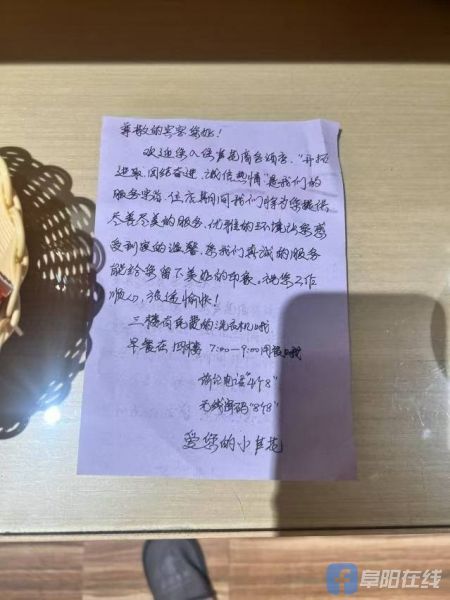 尊敬的宾客您好!
欢迎您入住 商务酒店、"开拓
进取、团结奋进、诚信热情"是我们的
服务宗旨。住店期间我们将为您提供
尽善尽美的服务、优雅的环境让您感
受到家的温馨、愿我们真诚的服务
能给您留下美好的印象。祝您工作
顺心,旅途愉快!
三楼有免费的洗衣机哦
早餐在1四楼 7:00—9:00用餐哦
前台电话"4个8"
无线密码"8个8"
爱您的小 花
阜阳在线